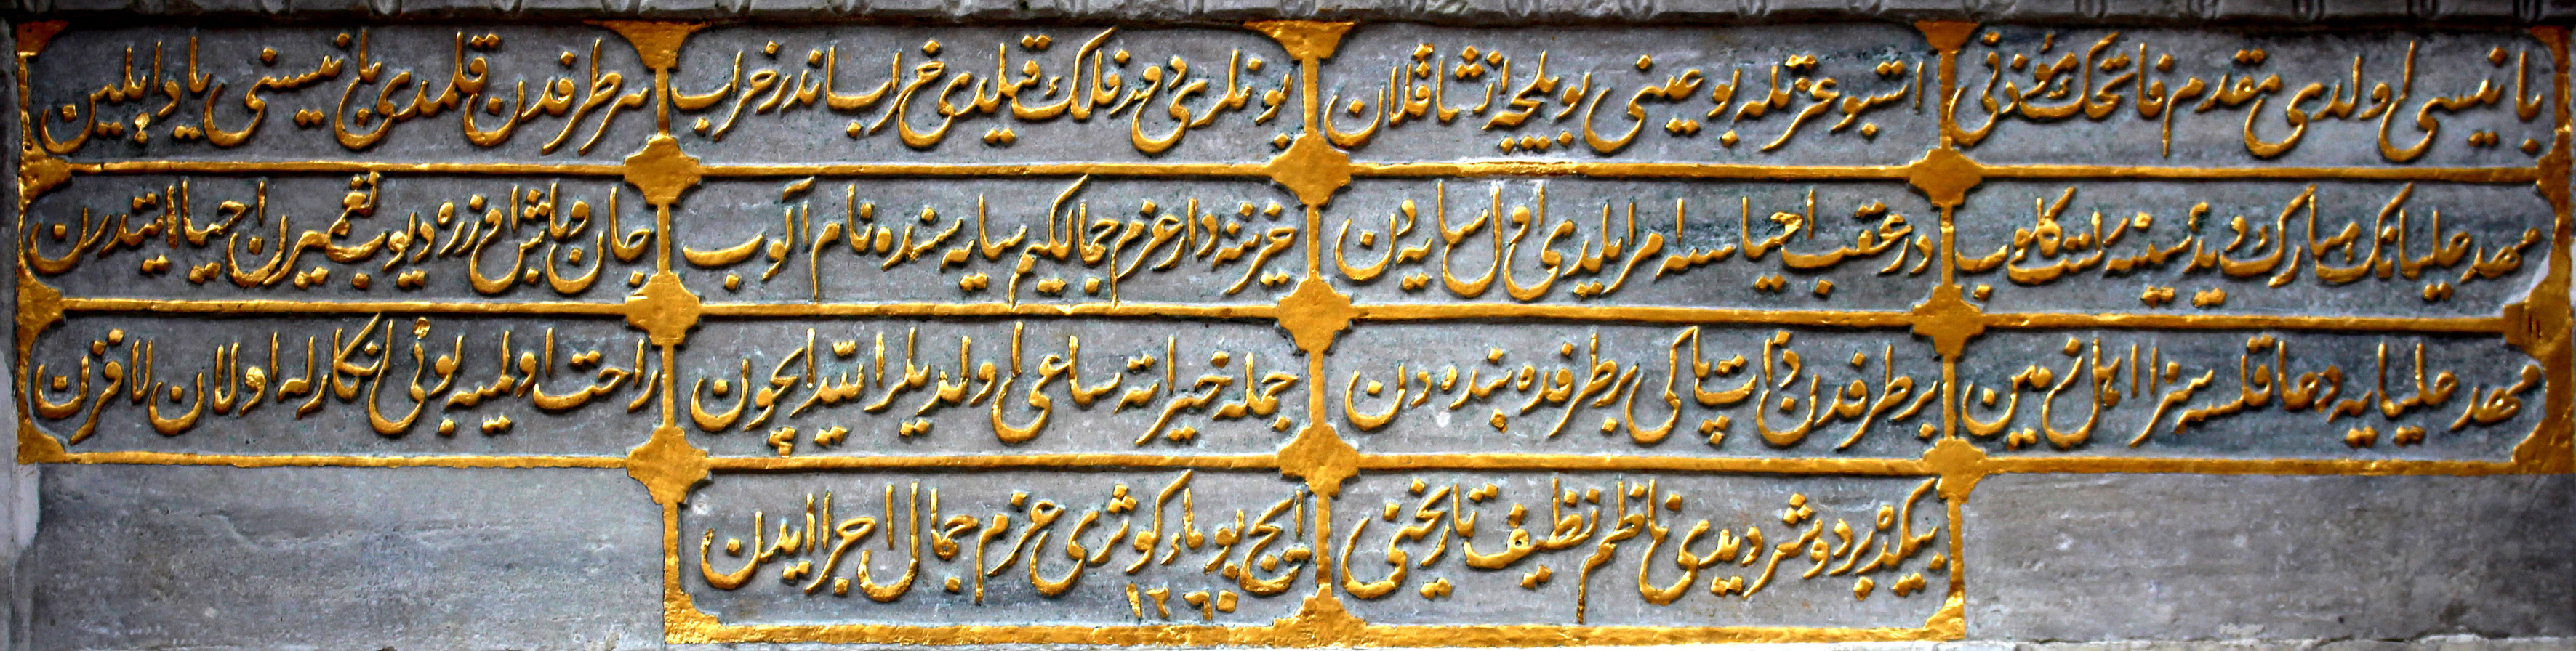 بانیسی اولدی مقدم فاتحك مؤذنی
اشبو عزتله بو عینی بویلجه انشا قلان
بونلری دور فلك قیلدی خراب اندر خراب
هر طرفدن قلمدی بانیسنی یاد ایلین
مهد علیانك مبارك دیده سینه گلوب
در عقب احیاسنه امر ایلدی اول سایه دن
خزینه دار عزم جمالكیم سایه سنده نام آلوب
جان وباش اوزره دیوب تعمیرن احیا ایتدرن
مهد علیایه دعا قلسه سزا اهل زمین
بر طرفدن ذات پاکی بر طرفده بنده دن
جمله خیراته ساعی اولدیلر الله ایچون
راحت اولمیه بونی انكارله اولان لافزن
دیدی ناظم نظیف تاریخنی
ایچ بو ماء كوثری عزم جمال اجرا ایدن
١٢٦٠